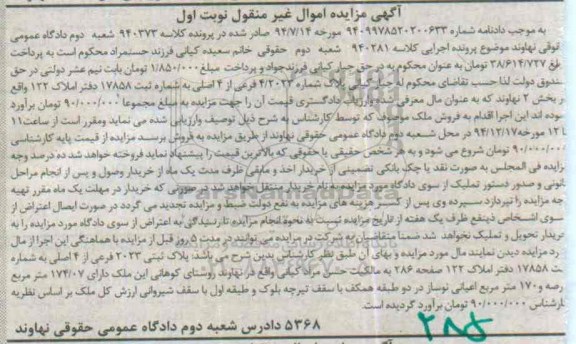 آگهی مزایده اموال غیر منقول نوبت اول
به موجب دادنامه شماره ۹۴۰۹۹۷۸۵۲۰۲۰۰۶۳۳ مورخه ۹۴/۷/۱۴ صادر شده در پرونده کلاسه ۹۴۰۳۷۳ شعبه دوم دادگاه عمومی
نهاوند موضوع پرونده اجرایی کلاسه ۹۴۰۲۸۱ شعبه دوم حقوقی خانم سعیده کیانی فرزند حستمراد محکوم است به پرداخت
۳۸/۶۱۴/۷۲۷ تومان به عنوان محکوم به در حق جبار کیانی فرزند جواد و پرداخت مبلغ ۱/۸۵۰/۰۰۰ تومان بابت نیم عشر دولتی در حق
صندوق دولت لذا حسب تقاضای محکوم له پلاک شماره ۴/۲۰۲۳ فرعی از ۴ اصلی به شماره ثبت ۱۷۸۵۸ دفتر املاک ۱۲۲ واقع
بخش ۲ نهاوند که به عنوان مال معرفی شده و ارزیاب دادگستری قیمت آن را جهت مزایده به مبلغ مجموعا ۹۰/۰۰۰/۰۰۰ تومان برآورد
اند این اجرا اقدام به فروش ملک موصوف که توسط کارشناس به شرح ذیل توصیف و ارزیابی شده می نماید ومقرر است از ساعت ۱۱
۱۲ مورخه ۹۴/۱۲/۱۷ در محل شعبه دوم دادگاه عمومی حقوقی نهاوند از طریق مزایده به فروش برسد مزایده از قیمت پایه کارشناسی
۹۰/۰۰۰/۰۰۰ تومان شروع می شود و به هر شخص حقیقی یا حقوقی که بالاترین قیمت را پیشنهاد نماید فروخته خواهد شد ده درصد وجه
مزایده فی المجلس به صورت نقد یا چک بانکی تضمینی از خریدار اخذ و مابقی ظرف مدت یک ماه از خریدار وصول و پس از انجام مراحل
قانونی و صدور دستور تملیک از سوی دادگاه مورد مزایده به نام خریدار منتقل خواهد شد در صورتی که خریدار در مهلت یک ماه مقرر تهیه
مزایده را نپردازد سپرده وی پس از کسر هزینه های مزایده به نفع دولت ضبط و مزایده تجدید می گردد در صورت ایصال اعتراض از
سوی اشخاص ذینفع ظرف یک هفته از تاریخ مزایده نسبت به نحوه انجام مزایده تا رسیدگی به اعتراض از سوی دادگاه مورد مزایده را به
خریدار تحویل و تملیک نخواهد شد ضمنا متقاضیان به شرکت در مزایده می توانند در مدت ۵ روز قبل از مزایده با هماهنگی این اجرا از مال
مزایده دیدن نمایند مال مورد مزایده و بهای آن طبق نظر کارشناس بدین شرح می باشد: پلاک ثبتی ۲۰۲۳ فرعی از ۴ اصلی به شماره
۱۷۸۵۸ دفتر املاک ۱۲۲ صفحه ۲۸۶ به مالکیت حسن مراد کیانی واقع در نهاوند روستای کوهانی این ملک دارای ۱۷۴/۰۷ متر مربع
و ۱۷۰ متر مربع اعیانی نوساز در دو طبقه همکف با سقف تیرچه بلوک و طبقه اول با سقف شیروانی ارزش کل ملک بر اساس نظریه
کارشناس ۹۰/۰۰۰/۰۰۰ تومان برآورد گردیده است.
۵۳۶۸ دادرس شعبه دوم دادگاه عمومی حقوقی نهاوند